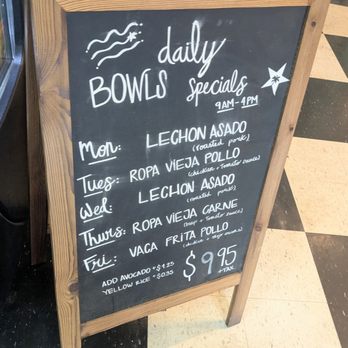 daily
BOWLS specials
9AM-4PM
Mon: LECHON ASADO
(roasted pork)
Tues: ROPA VIEJA POLLO
(chicken + tomato sauce)
Wed: LECHON ASADO
(roasted pork)
Thurs: ROPA VIEJA CARNE
(beef + tomato sauce)
Fri: VACA FRITA POLLO
(chicken +
ADD AVOCADO + $1.25
YELLOW RICE + $0.35
$9.95
+TAX